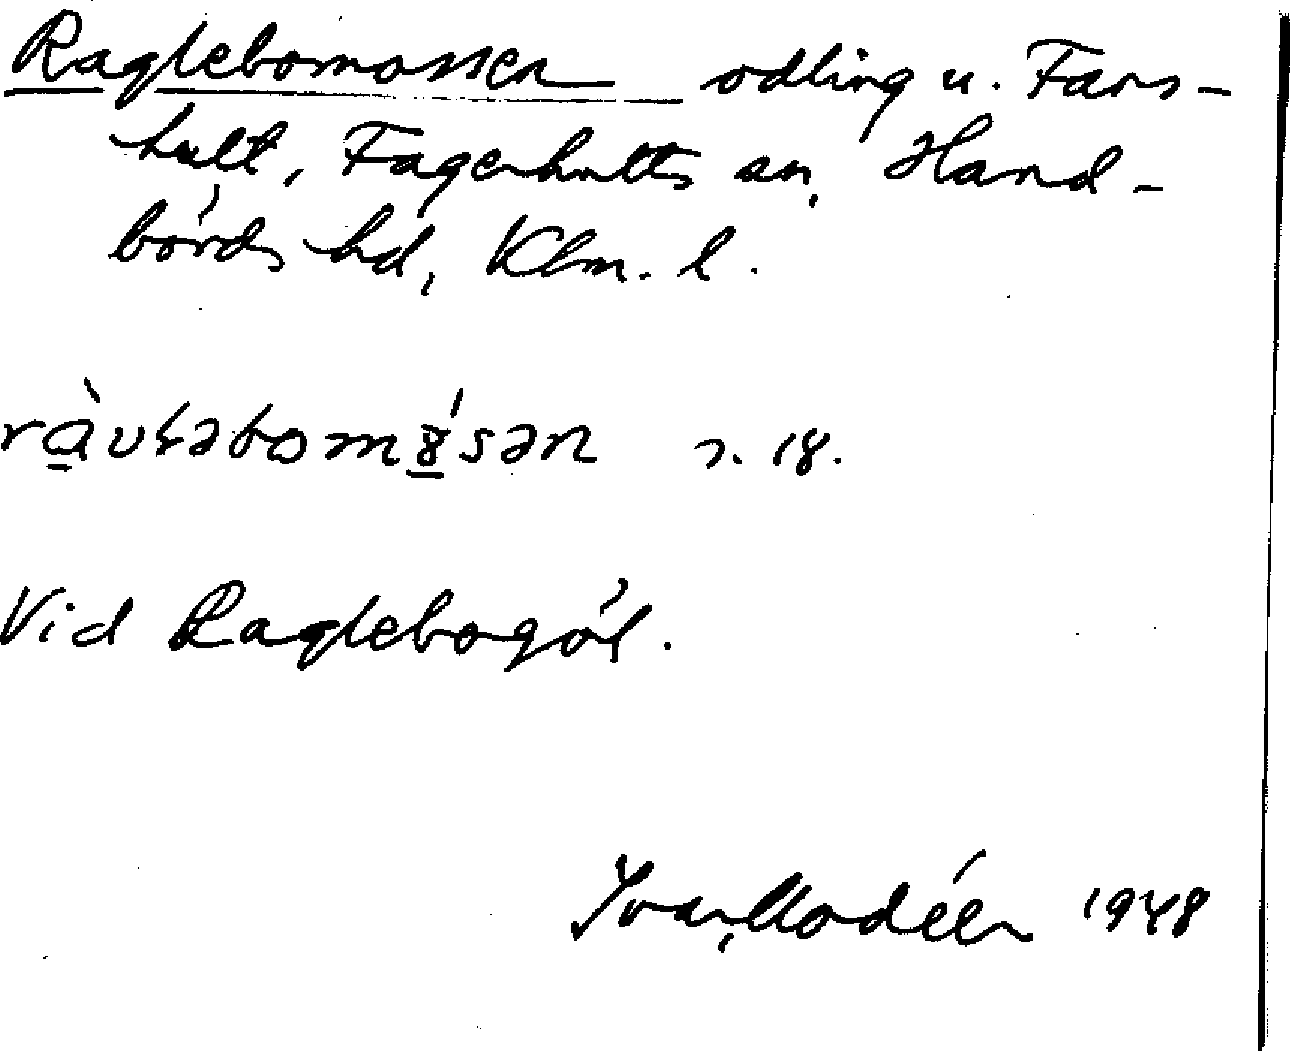 Raglebomossen odling u. Fars-
hult, Fagerhults sn, Hand-
börds hd, Klm. l.
s. 18.
Vid Raglebogöl.
Ivar Modéer 1948